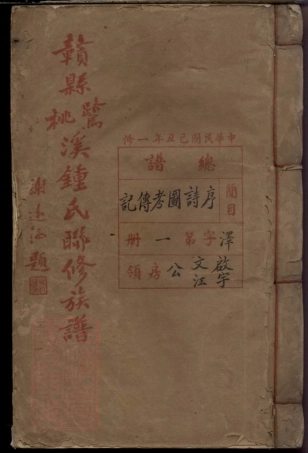 中華民國己丑年一修
總譜
簡目
序詩圖考傳記
澤字第一冊
啟宇
文江公房領
贛縣
鷺
桃溪鍾氏聯修族譜
題